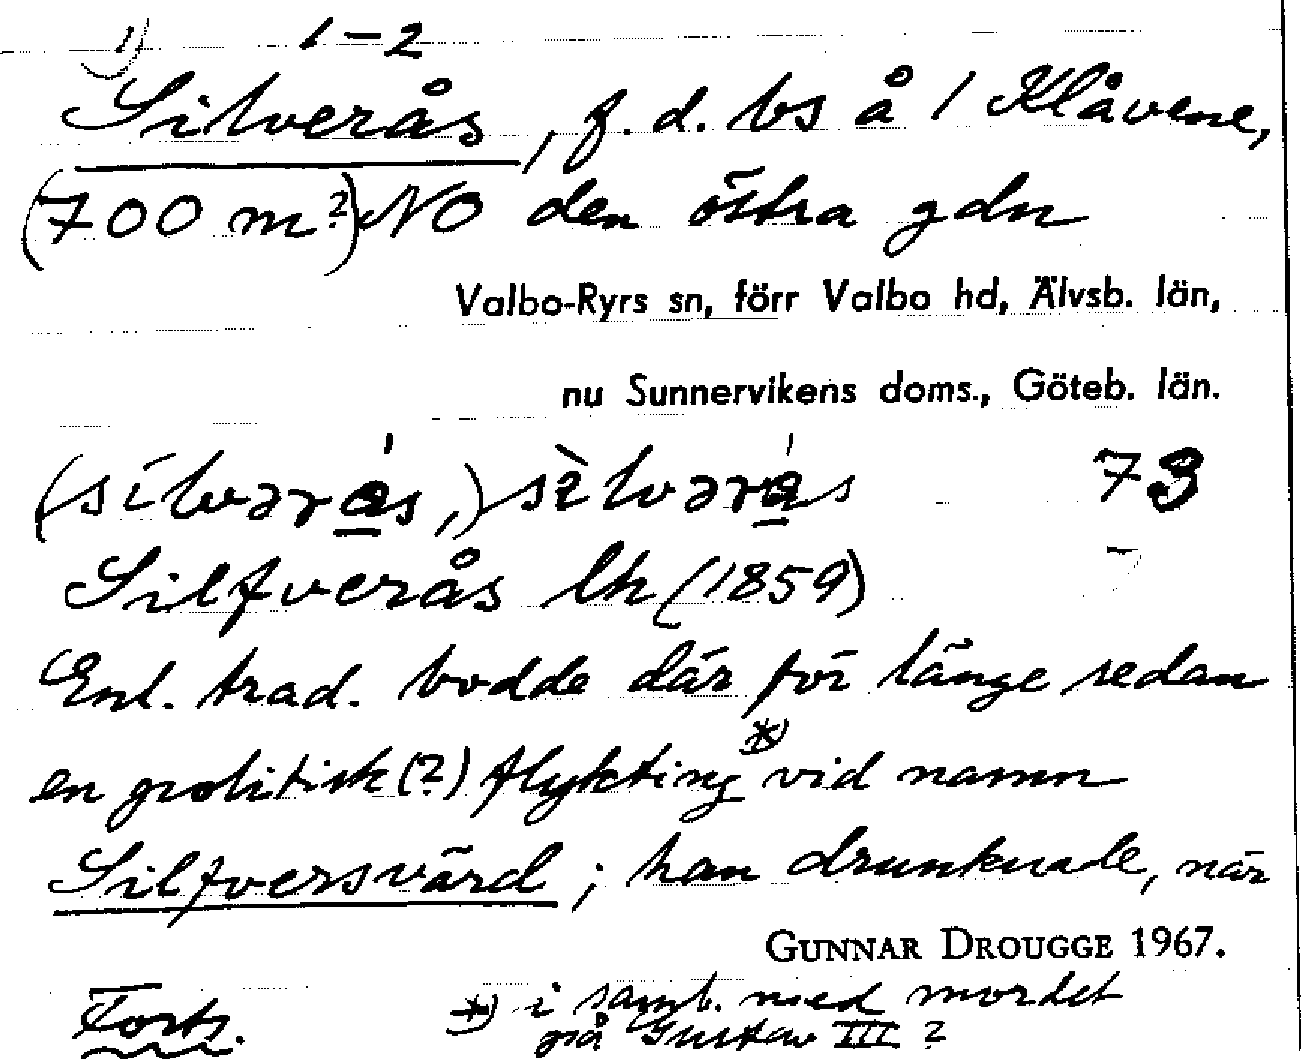 1) 1-2
Silverås, f.d. bs å 1 Klåvene,
(700 m?) NO den östra gdn
Valbo-Ryrs sn, förr Valbo hd, Älvsb. län,
nu Sunnervikens doms., Göteb. län.
(sílvərás,) sèlvərás 73
Silfverås lh (1859)
Enl. trad. bodde där för länge sedan
en politisk (?) flykting *) vid namn
Silfversvärd; han drunknade, när
GUNNAR DROUGGE 1967.
Forts. *) i samb. med mordet
på Gustav III ?